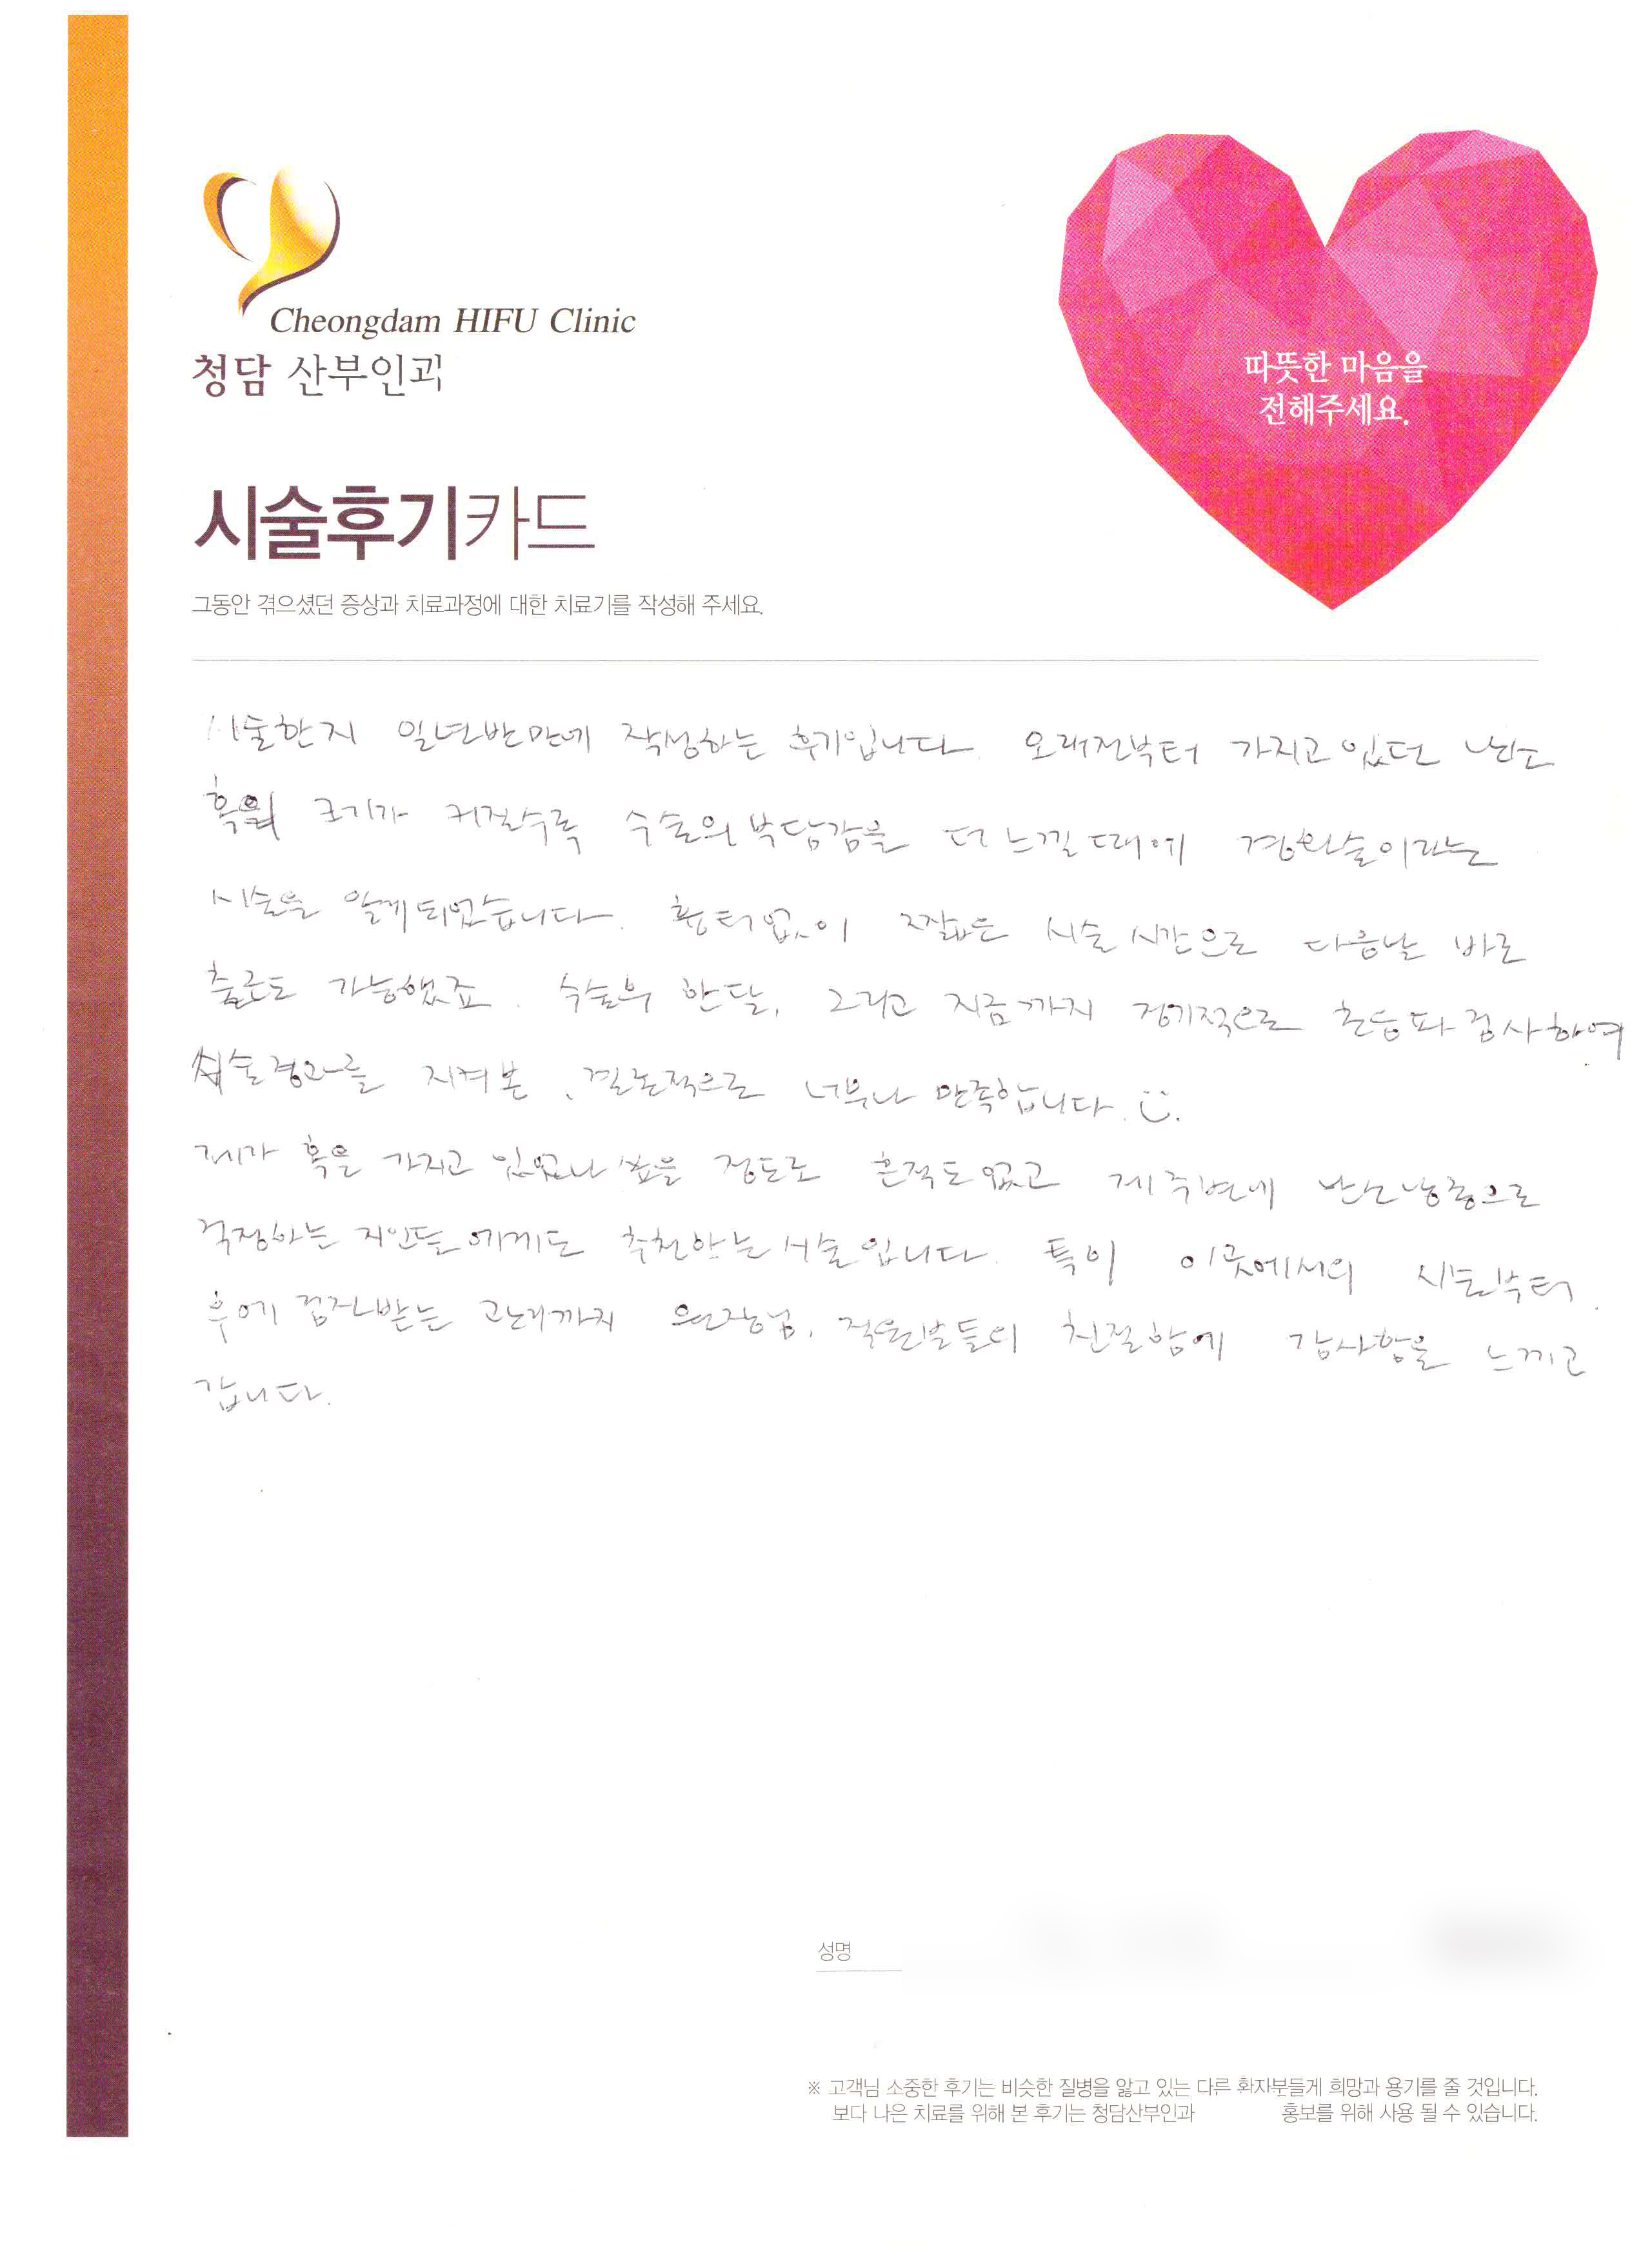 Cheongdam HIFU Clinic
청담 산부인과
따뜻한 마음을
전해주세요.
시술후기카드
그동안 겪으셨던 증상과 치료과정에 대한 치료기를 작성해 주세요.
시술한지 일년반만에 작성하는 후기입니다 오래전부터 가지고 있던 난소
혹의 크기가 커질수록 수술의 부담감을 더 느낄 때에 경화술이라는
시술을 알게되었습니다. 흉터없이 짧은 시술시간으로 다음날 바로
출근도 가능했죠. 수술후 한달, 그리고 지금까지 정기적으로 초음파 검사하여
시술경과를 지켜본, 결론적으로 너무나 만족합니다.
제가 혹을 가지고 있었나 싶을 정도로 흔적도 없고 제 주변에 난소낭종으로
걱정하는 지인들에게도 추천하는 시술입니다. 특히 이곳에서의 시술부터
후에 검진받는 관리까지 원장님, 직원분들의 친절함에 감사함을 느끼고
갑니다.
성명
※ 고객님 소중한 후기는 비슷한 질병을 앓고 있는 다른 환자분들게 희망과 용기를 줄 것입니다.
보다 나은 치료를 위해 본 후기는 청담산부인과 홍보를 위해 사용 될 수 있습니다.